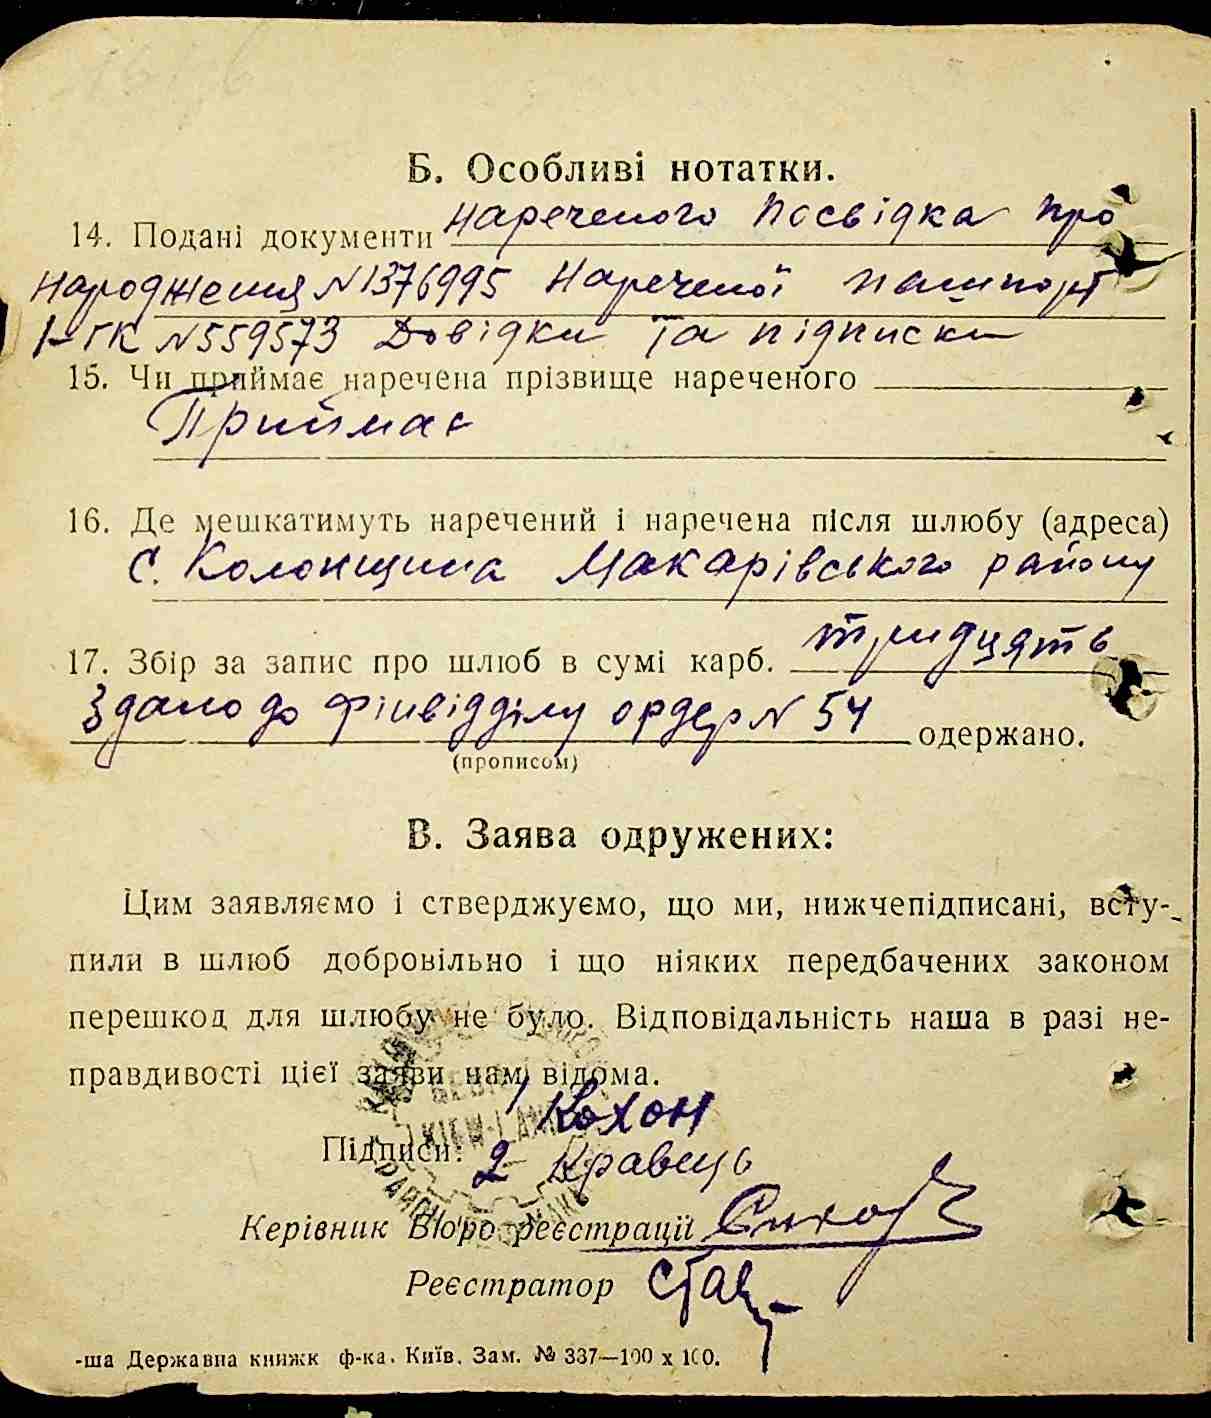 Б. Особливі нотатки.
14. Подані документи Нареченого Посвідка про
Народження №1376995 Нареченої пашпорт
ГК №559573 Довідки та підписки
15. Чи приймає наречена прізвище нареченого
Приймає
16. Де мешкатимуть наречений і наречена після шлюбу (адреса)
С. Колонщина Макарівського району
17. Збір за запис про шлюб в сумі карб. тридцять
Здано до фінвідділу ордер № 54 одержано.
(прописом)
В. Заява одружених:
Цим заявляємо і стверджуємо, що ми, нижчепідписані, всту-
пили в шлюб добровільно і що ніяких передбачених законом
перешкод для шлюбу не було. Відповідальність наша в разі не-
правдивості цієї заяви нам відома.
1 Кохон
Підписи: 2 Кравець
Керівник Бюро реєстрації
Реєстратор
-ша Державна книжк ф-ка. Київ. Зам. № 337—100 х 100.